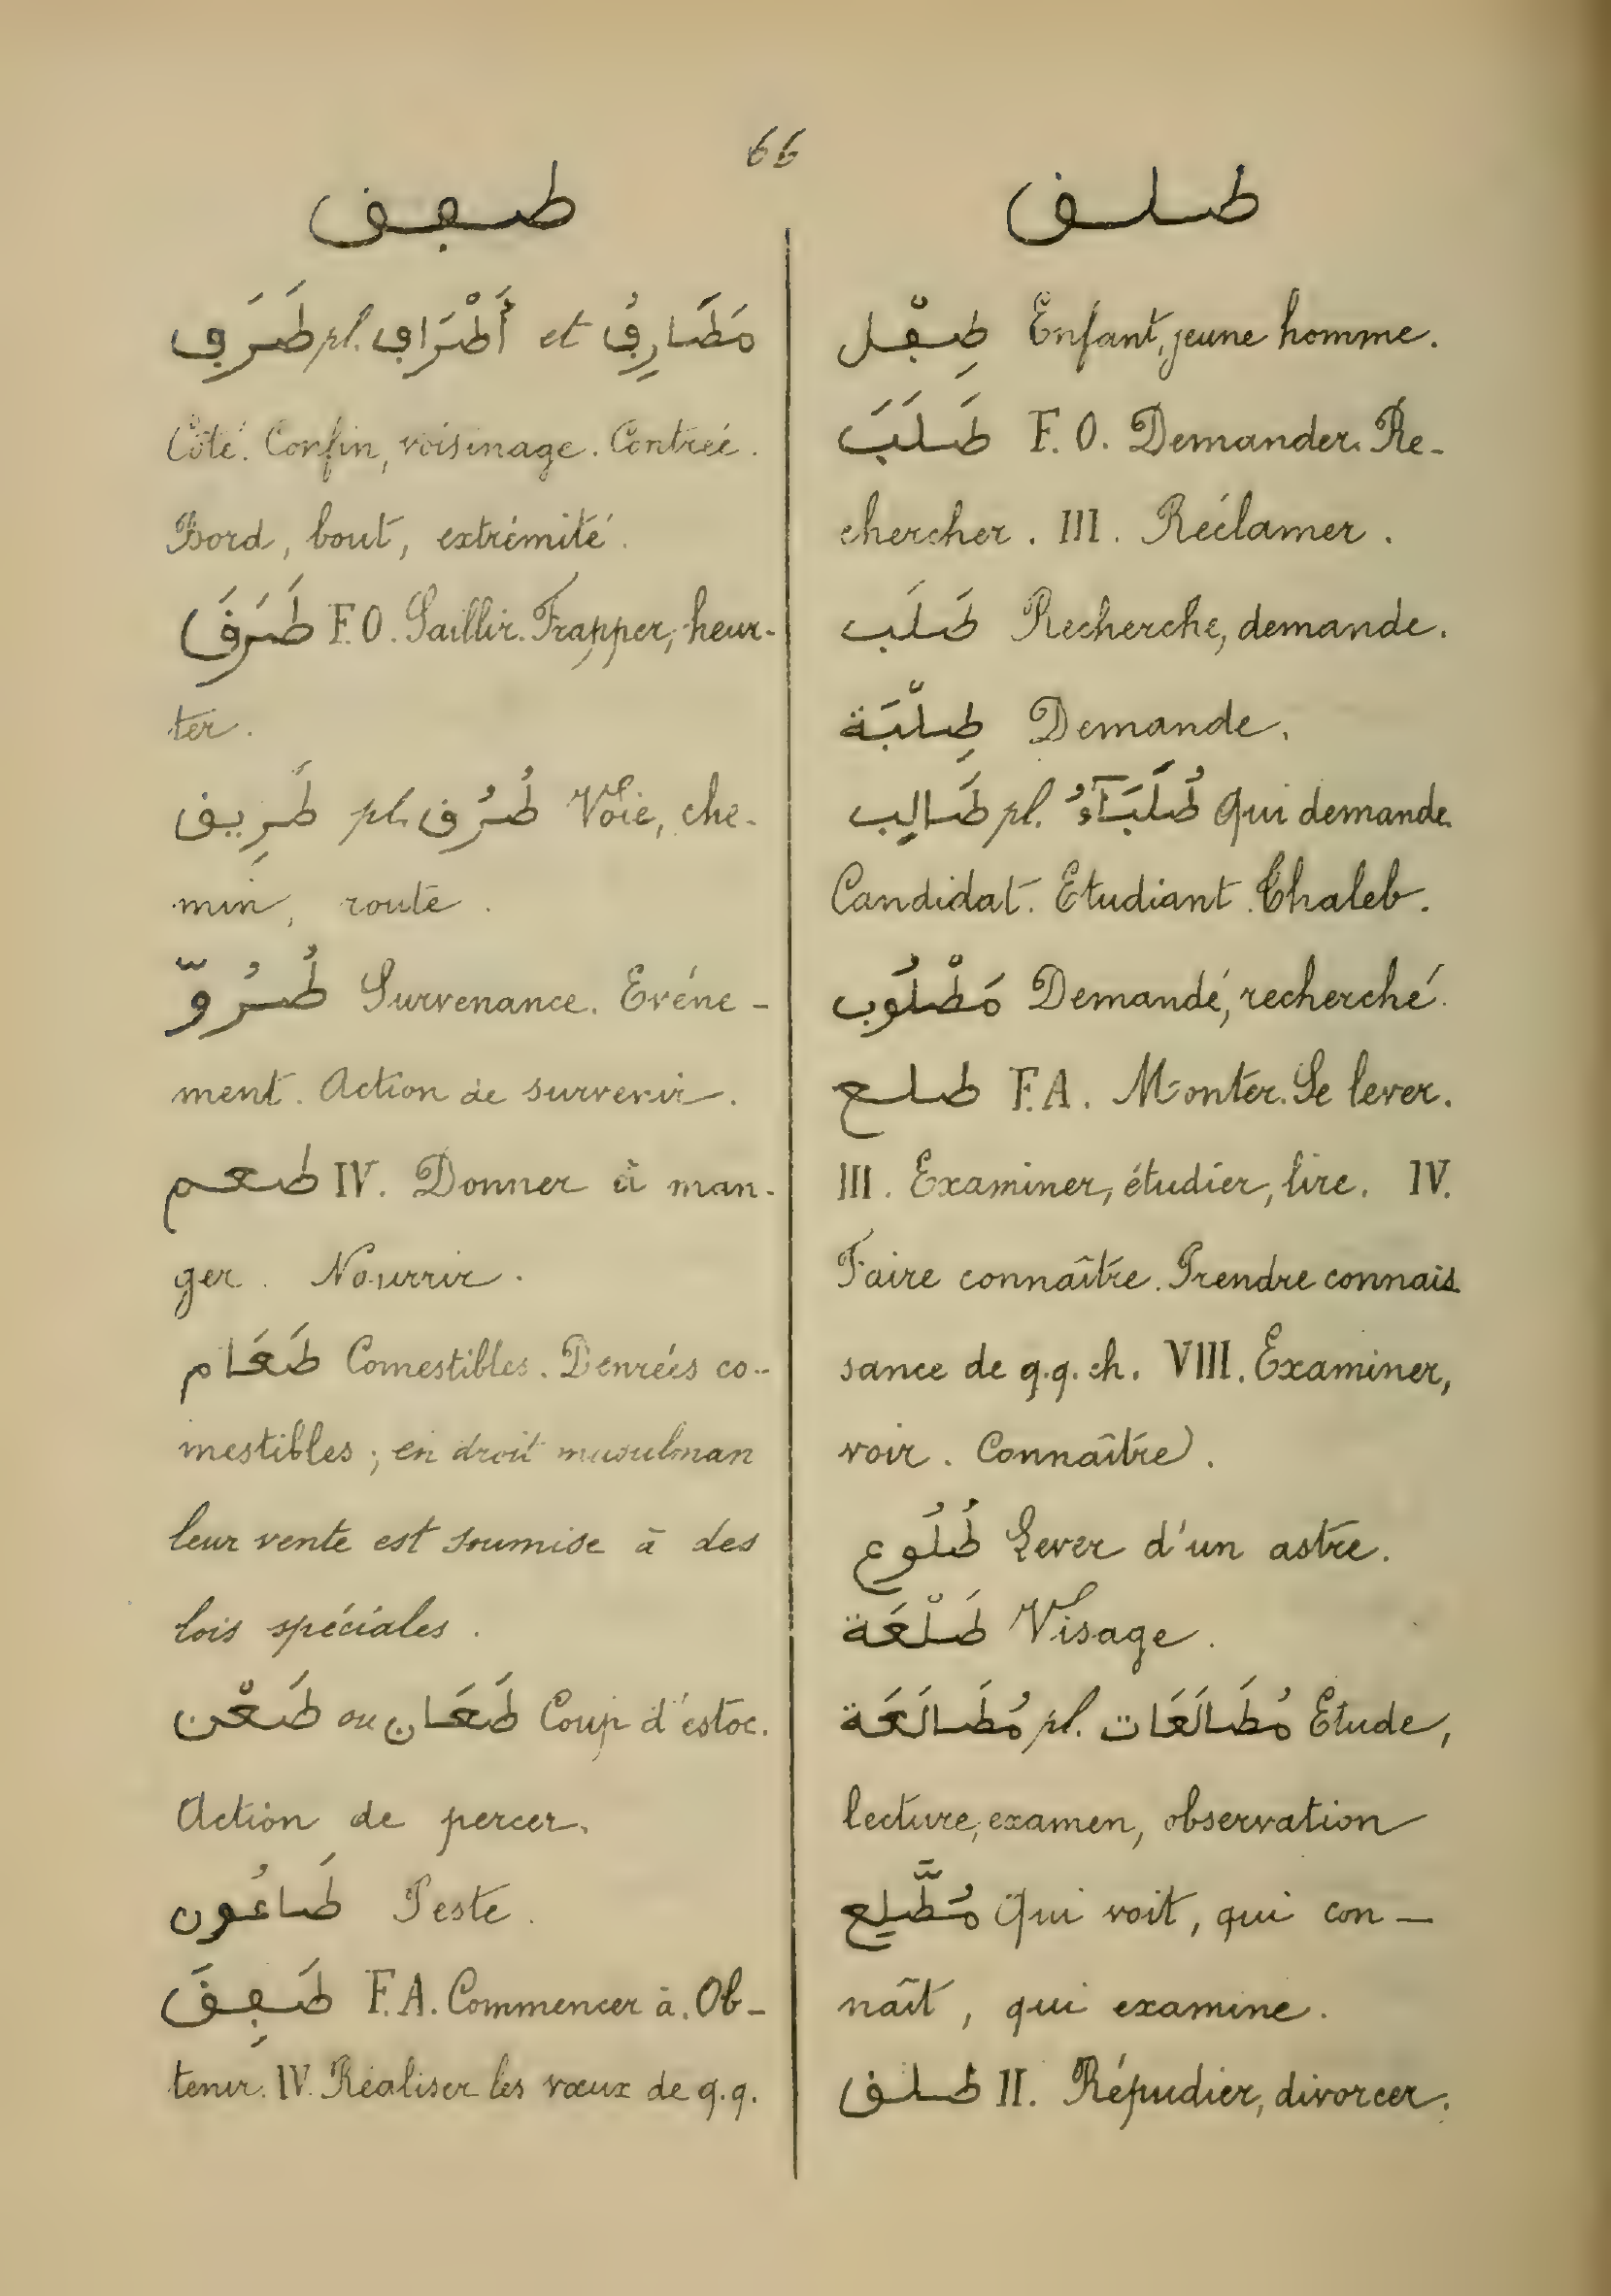 66
طفق
طَرَف pl. أَطْرَاف et مَطَارِفُ
Côté. Confin, voisinage. Contrée.
Bord, bout, extrémité.
طَرَقَ F. O. Saillir. Frapper, heur-
ter.
طَرِيق pl. طُرُق Voie, che-
min, route.
طُرُوّ Survenance. Evéne-
ment. Action de survenir.
طعم IV. Donner à man-
ger. Nourrir.
طَعَام Comestibles. Denrées co-
mestibles; en droit musulman
leur vente est soumise à des
lois spéciales.
طَعْن ou طَعَان Coup d'estoc.
Action de percer.
طَاعُون Peste.
طَفِقَ F. A. Commencer à. Ob-
tenir. IV. Réaliser les vœux de q.q.
طلق
طِفْل Enfant, jeune homme.
طَلَبَ F. O. Demander. Re-
chercher. III. Réclamer.
طَلَب Recherche, demande.
طِلْبَة Demande.
طَالِب pl. طُلَبَآءُ Qui demande.
Candidat. Etudiant. Thaleb.
مَطْلُوب Demandé, recherché.
طلع F. A. Monter. Se lever.
III. Examiner, étudier, lire. IV.
Faire connaître. Prendre connais
sance de q.q. ch. VIII. Examiner,
voir. Connaître.
طُلُوع Lever d'un astre.
طَلْعَة Visage.
مُطَالَعَة pl. مُطَالَعَات Etude,
lecture, examen, observation
مُطَّلِع Qui voit, qui con-
naît, qui examine.
طلق II. Répudier, divorcer.